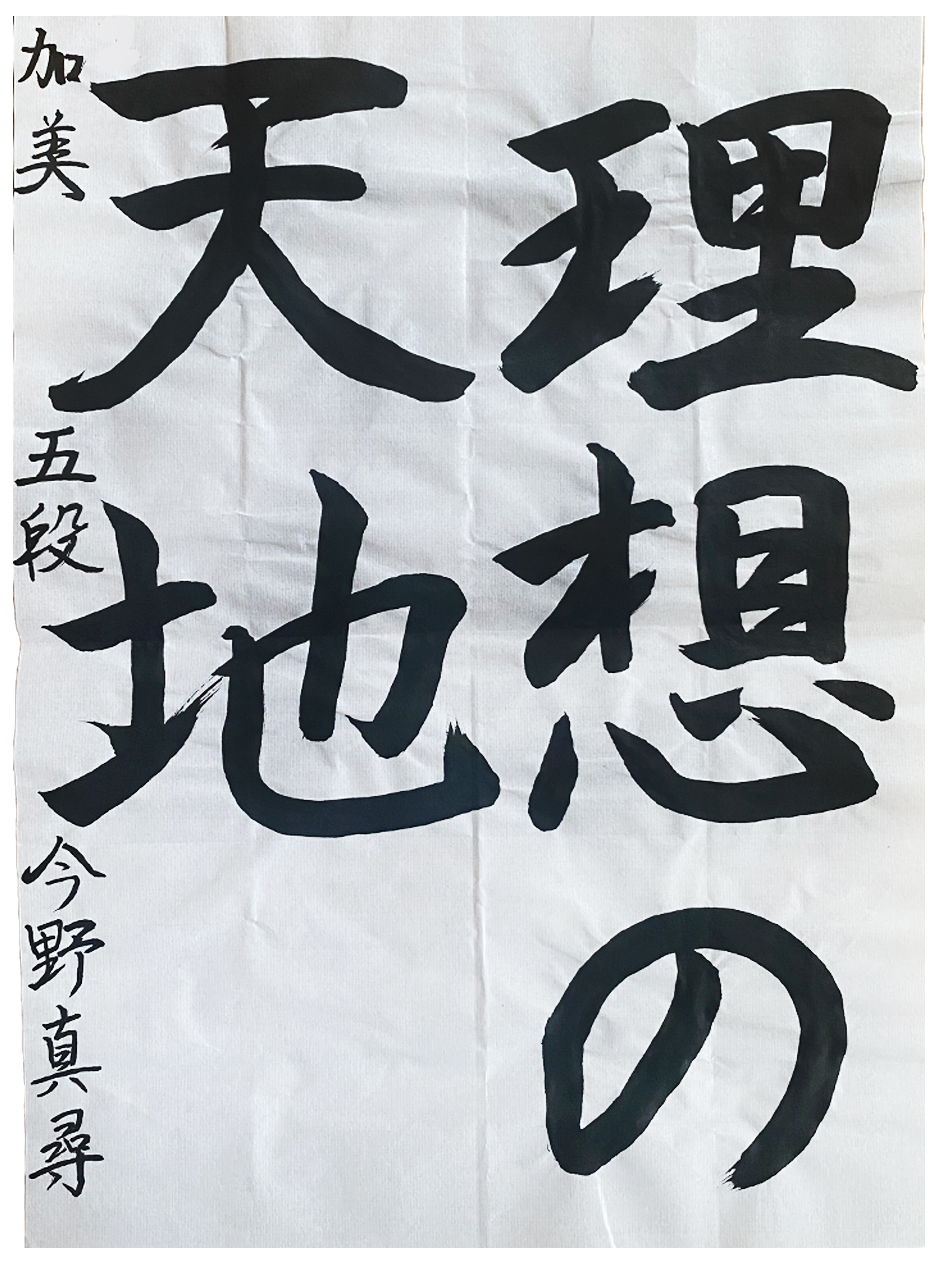 理想の
天地
加美 五段 今野真尋